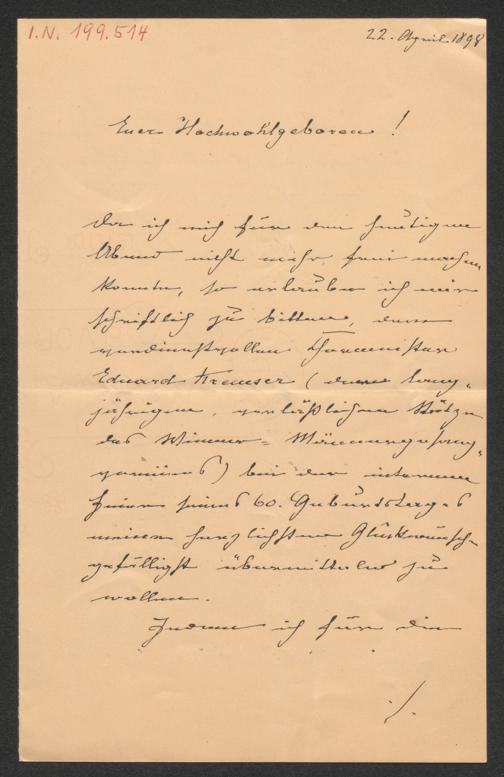 I.N. 199.514
22. April 1898
Euer Hochwohlgeboren!
Da ich mich für den heutigen
Abend nicht mehr frei machen
konnte, so erlaube ich mir
schriftlich zu bitten, dem
verdienstvollen Chormeister
Eduard Kremser (dem lang-
jährigen, verläßlichen Stütze
des Wiener-Männergesang-
vereins) bei der internen
Feier seines 60. Geburtstages
meinen herzlichsten Glückwunsch
gefälligst übermitteln zu
wollen.
Indem ich für die
./.